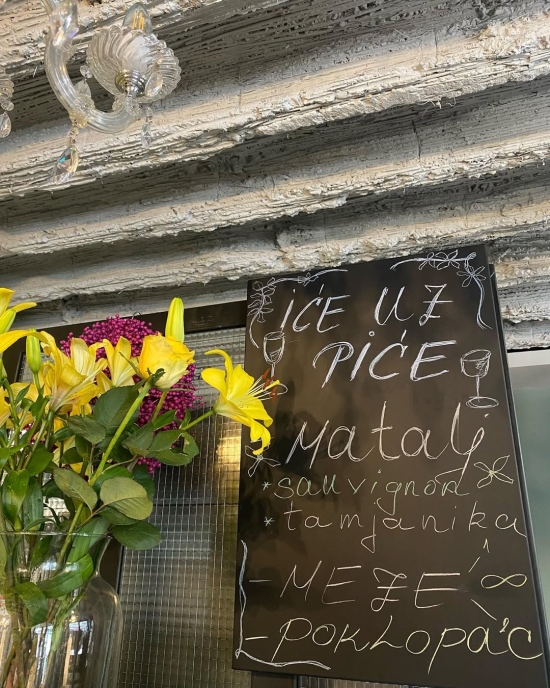 IĆE UZ
PIĆE
Matalj
*sauvignon
*tamjanika
- MEZE
- POKLOPAC